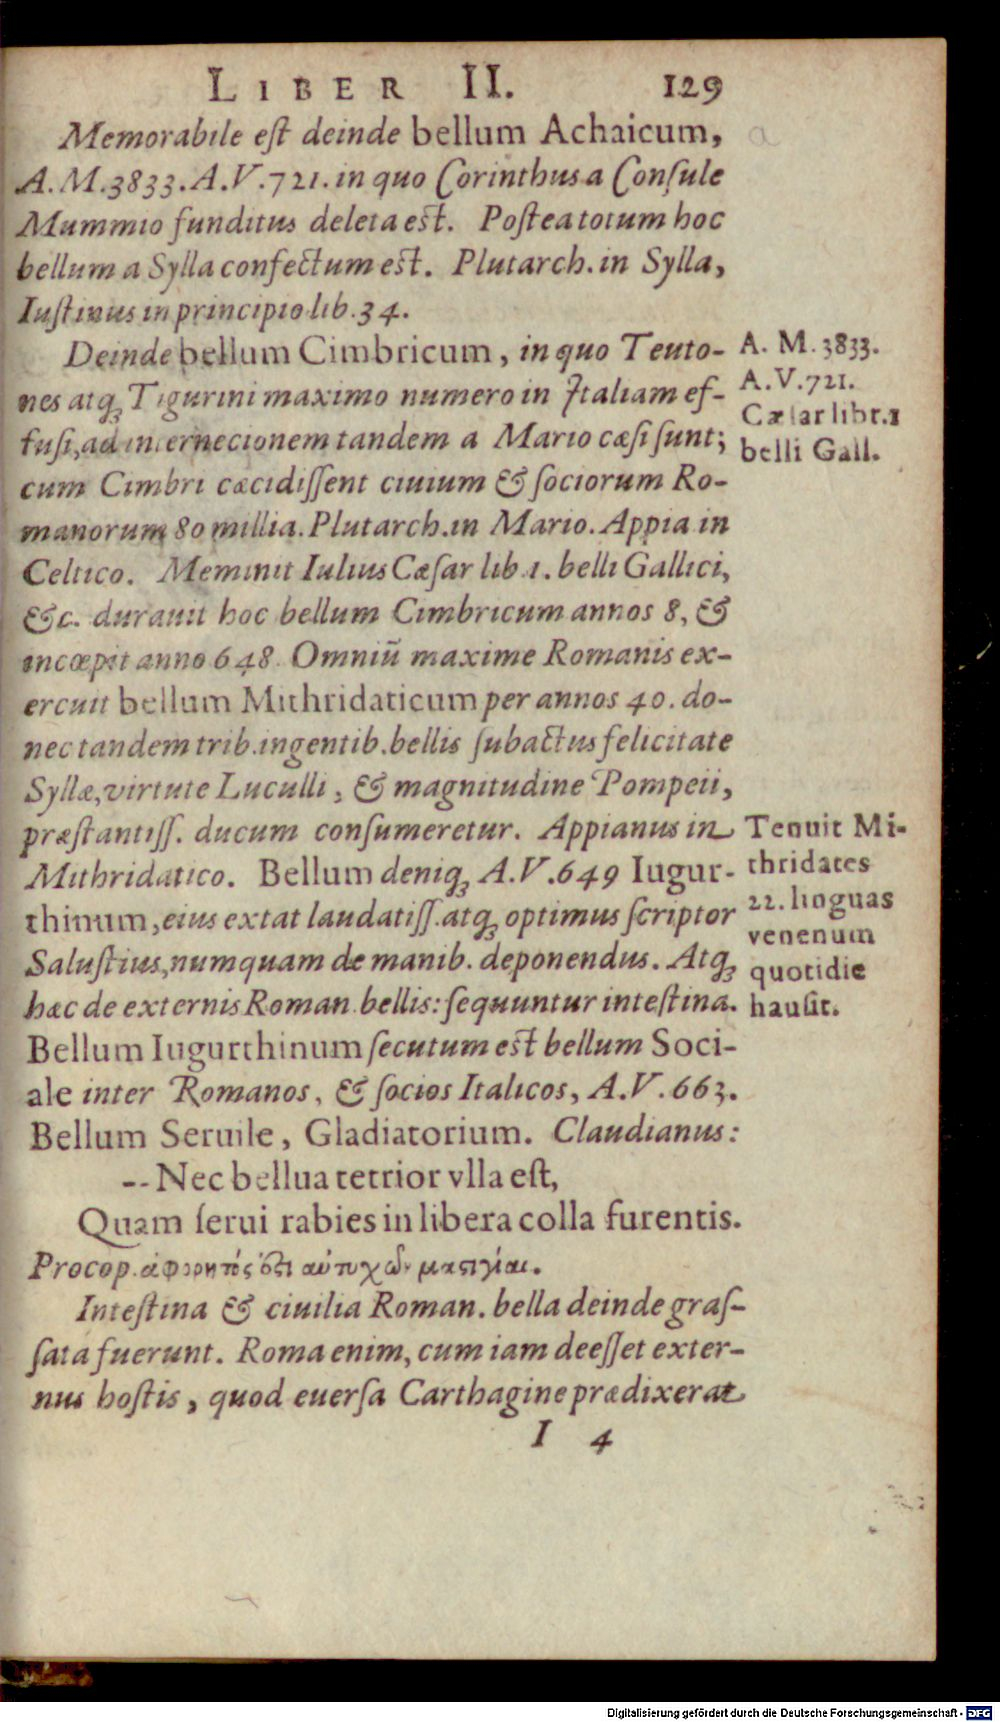 LIBER II. 129
Memorabile eſt deinde bellum Achaicum,
A. M. 3833. A. V. 721. in quo Corinthus a Conſule
Mummio funditus deleta eſt. Poſtea totum hoc
bellum a Sylla confectum eſt. Plutarch. in Sylla,
Iuſtinus in principio lib. 34.
Deinde bellum Cimbricum, in quo Teuto-
nes atq; Tigurini maximo numero in Italiam ef-
fuſi, ad internecionem tandem a Mario cæſi ſunt;
cum Cimbri cæcidiſſent ciuium & ſociorum Ro-
manorum 80 millia. Plutarch. in Mario. Appia in
Celtico. Meminit Iulius Cæſar lib 1. belli Gallici,
&c. durauit hoc bellum Cimbricum annos 8, &
incœpit anno 648. Omniū maxime Romanis ex-
ercuit bellum Mithridaticum per annos 40. do-
nec tandem trib. ingentib. bellis ſubactus felicitate
Syllæ, virtute Luculli, & magnitudine Pompeii,
præſtantiſſ. ducum conſumeretur. Appianus in
Mithridatico. Bellum deniq; A. V. 649 Iugur-
thinum, eius extat laudatiſſ. atq; optimus ſcriptor
Saluſtius, numquam de manib. deponendus. Atq;
hæc de externis Roman. bellis: ſequuntur inteſtina.
Bellum Iugurthinum ſecutum eſt bellum Soci-
ale inter Romanos, & ſocios Italicos, A. V. 663.
Bellum Seruile, Gladiatorium. Claudianus:
-- Nec bellua tetrior vlla eſt,
Quam ſerui rabies in libera colla furentis.
Procop. ἀφορητός ὅτι αὐτυχῶν μαστιγίαι.
Inteſtina & ciuilia Roman. bella deinde graſ-
ſata fuerunt. Roma enim, cum iam deeſſet exter-
nus hoſtis, quod euerſa Carthagine prædixerat
I 4
A. M. 3833.
A. V. 721.
Cæſar libr. 1
belli Gall.
Tenuit Mi-
thridates
22. linguas
venenum
quotidie
hauſit.
a
Digitalisierung gefördert durch die Deutsche Forschungsgemeinschaft - DFG